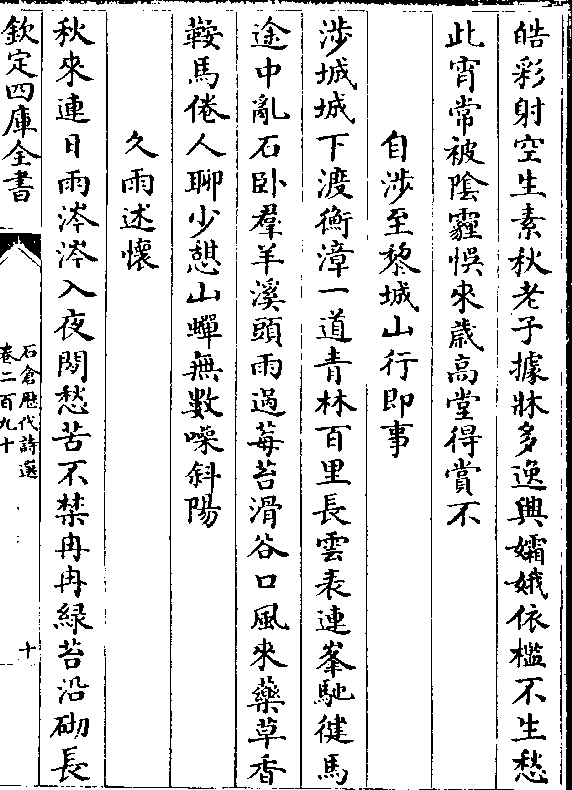 皓彩射空生素秋老子據牀多逸興孀娥依檻不生愁
此宵常被陰霾悞來歲高堂得賞不
自涉至黎城山行即事
涉城城下渡衡漳一道青林百里長雲表連峯馳健馬
途中亂石卧羣羊溪頭雨過莓苔滑谷口風來藥草香
鞍馬倦人聊少憇山蟬無數噪斜陽
久雨述懷
秋來連日雨涔涔入夜閱愁苦不禁冉冉緑苔沿砌長
欽定四庫全書
石倉歷代詩選
卷二百九十
十